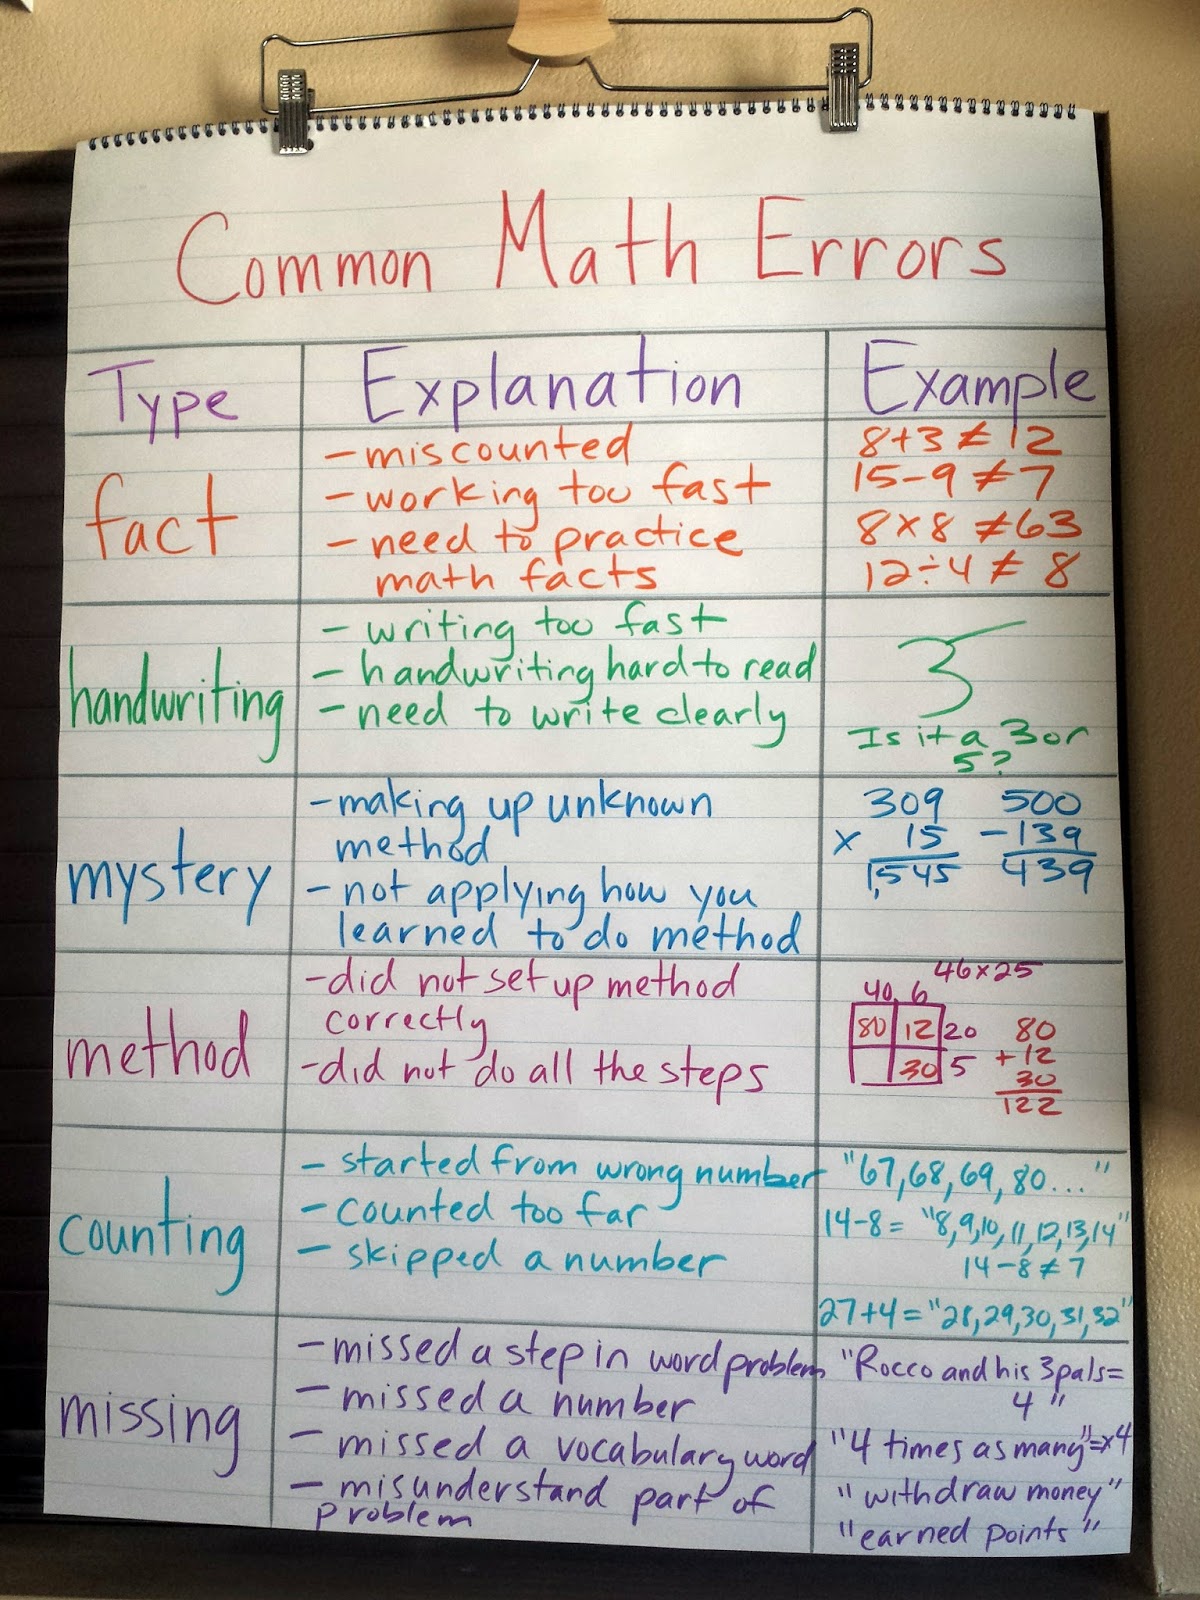 Common Math Errors
Type
Explanation
Example
fact
- miscounted
- working too fast
- need to practice
math facts
8+3 ≠ 12
15-9 ≠ 7
8×8 ≠ 63
12÷4 ≠ 8
handwriting
- writing too fast
- handwriting hard to read
- need to write clearly
Is it a 3 or
5?
mystery
- making up unknown
method
- not applying how you
learned to do method
309 500
× 15 -139
1,545 439
method
- did not set up method
correctly
- did not do all the steps
46×25
40 6
80 12 20 80
+12
30 5 30
122
counting
- started from wrong number
- counted too far
- skipped a number
"67, 68, 69, 80..."
14-8 = "8,9,10,11,12,13,14"
14-8 ≠ 7
27+4 = "28,29,30,31,32"
missing
- missed a step in word problem
- missed a number
- missed a vocabulary word
- misunderstand part of
problem
"Rocco and his 3 pals =
4"
"4 times as many" = ×4
"withdraw money"
"earned points"